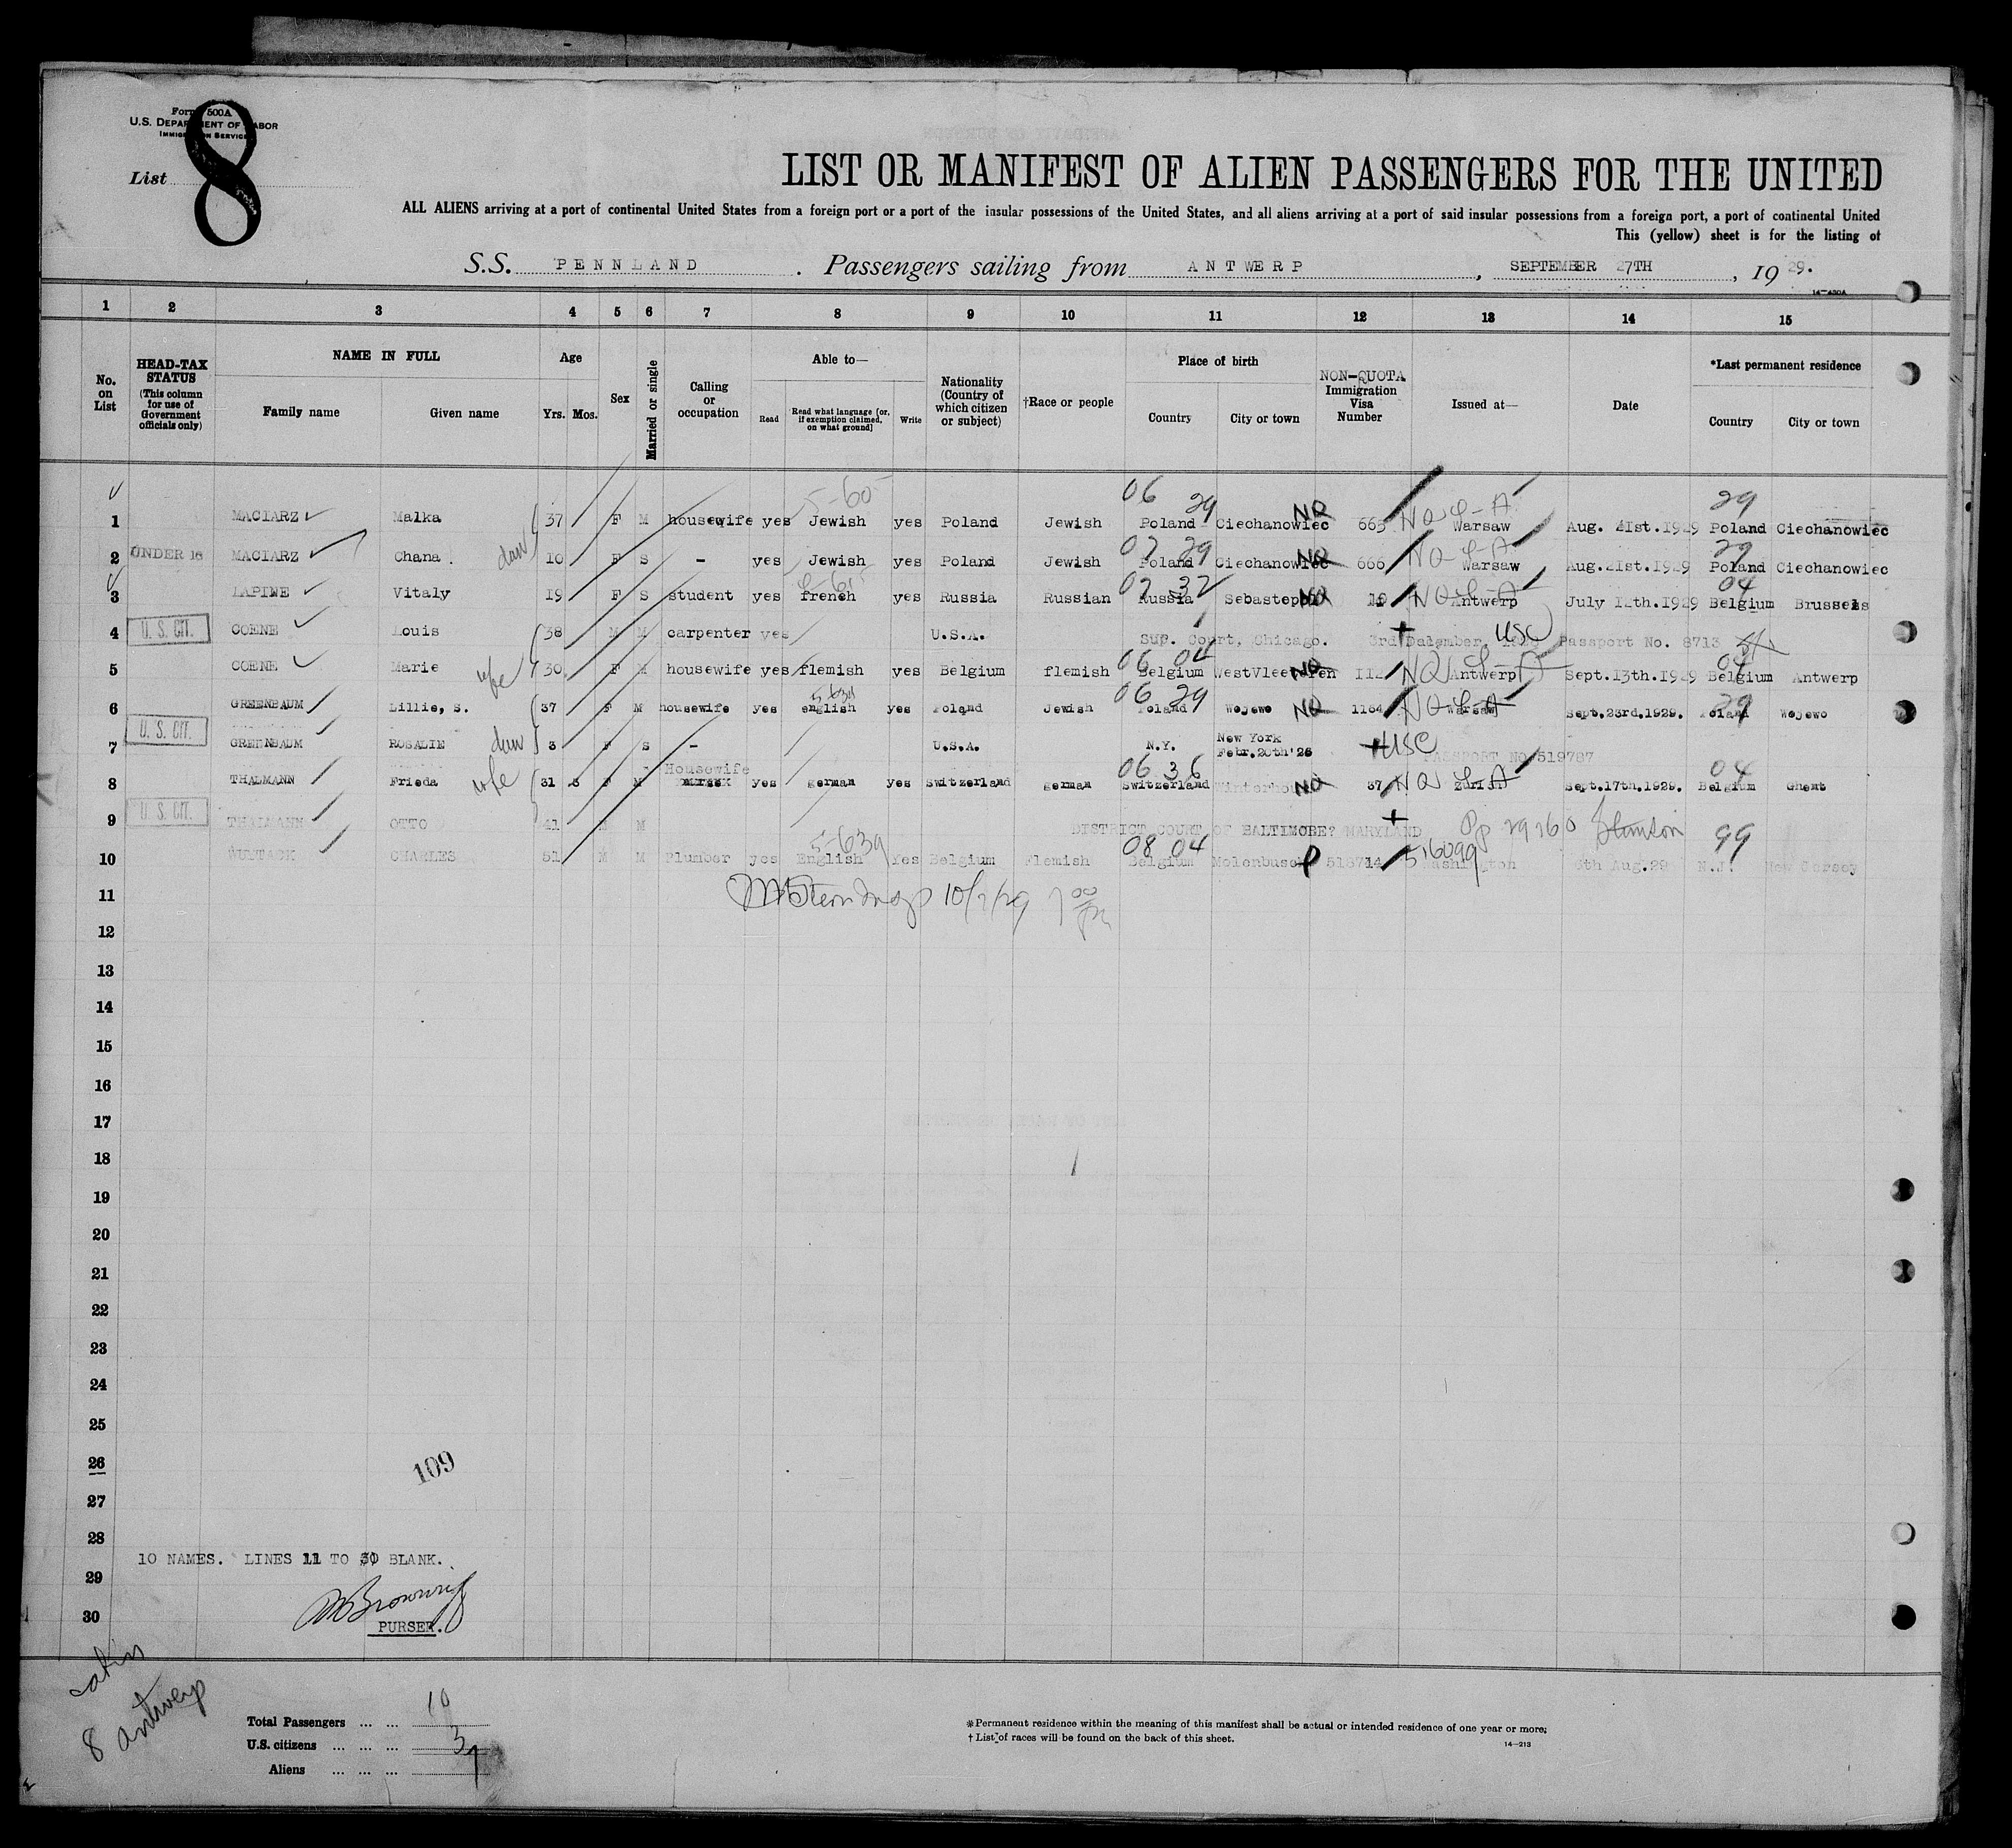 Form 500A
U.S. DEPARTMENT OF LABOR
IMMIGRATION SERVICE
List 8
LIST OR MANIFEST OF ALIEN PASSENGERS FOR THE UNITED
ALL ALIENS arriving at a port of continental United States from a foreign port or a port of the insular possessions of the United States, and all aliens arriving at a port of said insular possessions from a foreign port, a port of continental United
This (yellow) sheet is for the listing of
S.S. PENNLAND . Passengers sailing from ANTWERP , SEPTEMBER 27TH , 19 29.
14-430A
1 2 3 4 5 6 7 8 9 10 11 12 13 14 15
No. on List
HEAD-TAX STATUS (This column for use of Government officials only)
NAME IN FULL
Family name Given name
Age
Yrs. Mos.
Sex
Married or single
Calling or occupation
Able to—
Read
Read what language [or, if exemption claimed, on what ground]
Write
Nationality (Country of which citizen or subject)
†Race or people
Place of birth
Country City or town
NON-QUOTA Immigration Visa Number
Issued at—
Date
*Last permanent residence
Country City or town
5-60 06 29 NQ 29
1 MACIARZ Malka 37 F M housewife yes Jewish yes Poland Jewish Poland Ciechanowiec 665 Warsaw Aug. 21st.1929 Poland Ciechanowiec
07 29 NQ 29
2 UNDER 16 MACIARZ Chana. dau 10 F S - yes Jewish yes Poland Jewish Poland Ciechanowiec 666 Warsaw Aug.21st.1929 Poland Ciechanowiec
07 37 04
3 LAPINE Vitaly 19 F S student yes french yes Russia Russian Russia Sebastopol Antwerp July 12th.1929 Belgium Brussels
4 U.S. CIT. COENE Louis 38 M M carpenter yes U.S.A. Sup. Court, Chicago. 3rd USC Passport No. 8713
06 04 NQ 04
5 COENE Marie wife 30 F M housewife yes flemish yes Belgium flemish Belgium 112 NQ Antwerp Sept.13th.1929 Belgium Antwerp
5-639 06 29 29
6 GREENBAUM Lillie, S. 37 F M housewife yes english yes Poland Jewish Poland Wojewo NQ 1164 Warsaw Sept.23rd.1929. Poland Wojewo
7 U.S. CIT. GREENBAUM ROSALIE dau 3 F S - U.S.A. N.Y. New York Febr.20th'26 USC PASSPORT NO 519787
Housewife 06 36 04
8 THALMANN Frieda wife 31 8 F M yes german yes Switzerland german Switzerland NQ 37 NQ Zurich Sept.17th.1929. Belgium Ghent
9 U.S. CIT. THALMANN OTTO 41 M M DISTRICT COURT OF BALTIMORE? MARYLAND Pp 29260
5-639 08 04 516099 99
10 WUYTACK CHARLES 51 M M Plumber yes English Yes Belgium Flemish Belgium P 518714 Washington 6th Aug.29 N.J. New Jersey
11 10/7/29 7 00
12
13
14
15
16
17
18
19
20
21
22
23
24
25
26
109
27
28
10 NAMES. LINES 11 TO 30 BLANK.
29
30
PURSER.
8 Antwerp
Total Passengers ... ... 10
U.S. citizens ... ... ... 3
Aliens ... ... ... 7
*Permanent residence within the meaning of this manifest shall be actual or intended residence of one year or more.
† List of races will be found on the back of this sheet.
14-213